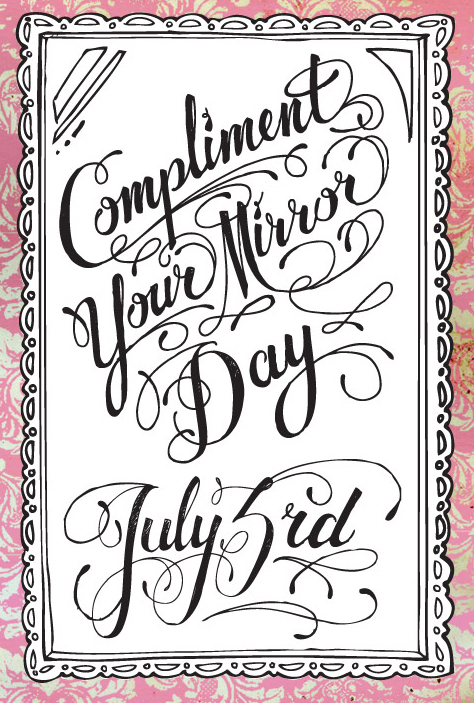 Compliment
Your Mirror
Day
July 3rd